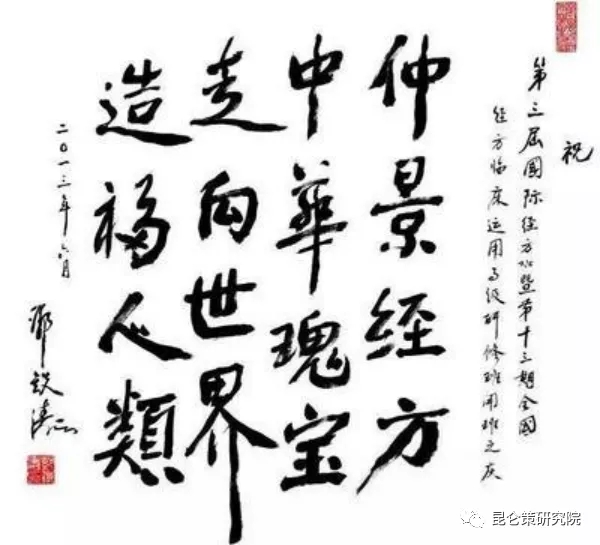 祝
第三届國际经方班暨第十三期全国
经方临床运用高级研修班開班之庆
仲景经方
中華瑰宝
走向世界
造福人類
二〇一三年六月
邓铁涛
昆仑策研究院